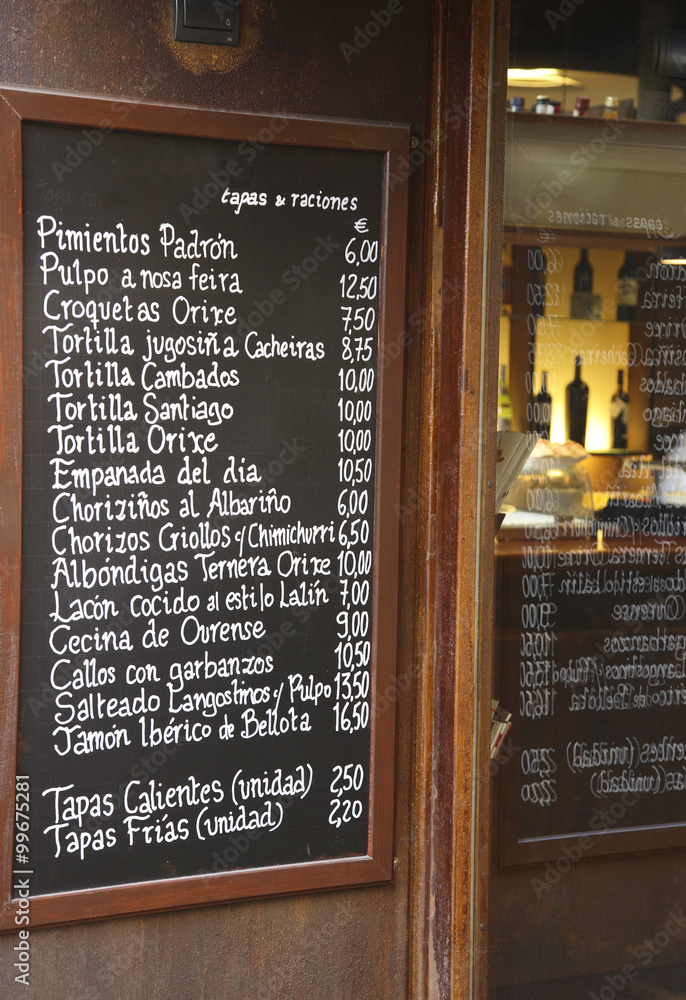 tapas & raciones
€
Pimientos Padrón 6,00
Pulpo a nosa feira 12,50
Croquetas Orixe 7,50
Tortilla jugosiña Cacheiras 8,75
Tortilla Cambados 10,00
Tortilla Santiago 10,00
Tortilla Orixe 10,00
Empanada del día 10,50
Choriziños al Albariño 6,00
Chorizos Criollos c/Chimichurri 6,50
Albóndigas Ternera Orixe 10,00
Lacón cocido al estilo Lalín 7,00
Cecina de Ourense 9,00
Callos con garbanzos 10,50
Salteado Langostinos y Pulpo 13,50
Jamón Ibérico de Bellota 16,50
Tapas Calientes (unidad) 2,50
Tapas Frías (unidad) 2,20
Adobe Stock | #99675281